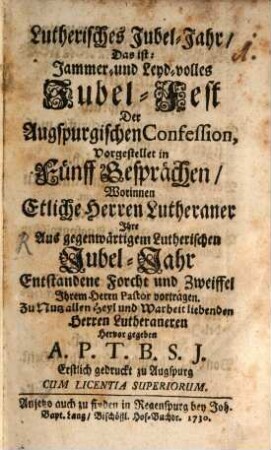 Lutherisches Jubel-Jahr/
Das ist:
Jammer- und Leyd-volles
Jubel-Fest
Der
Augspurgischen Confession,
Vorgestellet in
Fünff Gesprächen/
Worinnen
Etliche Herren Lutheraner
Ihre
Aus gegenwärtigem Lutherischen
Jubel-Jahr
Entstandene Forcht und Zweiffel
Ihrem Herrn Pastor vortragen.
Zu Nutz allen Heyl und Warheit liebenden
Herren Lutheraneren
Hervor gegeben
A. P. T. B. S. J.
Erstlich gedruckt zu Augspurg
CUM LICENTIA SUPERIORUM.
Anjetzo auch zu finden in Regenspurg bey Joh.
Bapt. Lang/ Bischöffl. Hof-Buchdr. 1730.